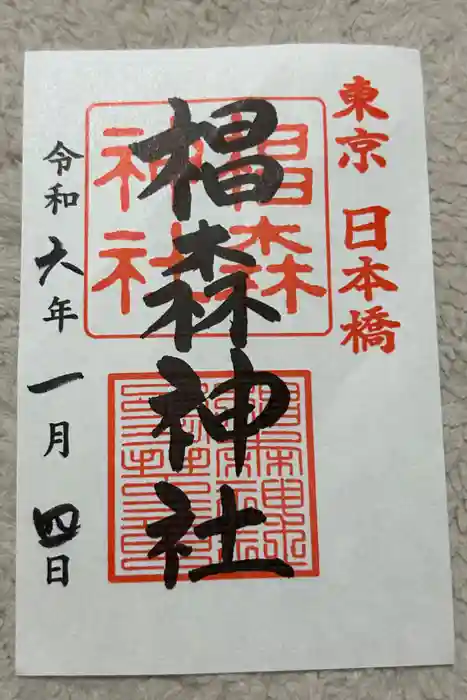 東京 日本橋
椙森神社
椙森
神社
令和六年一月四日